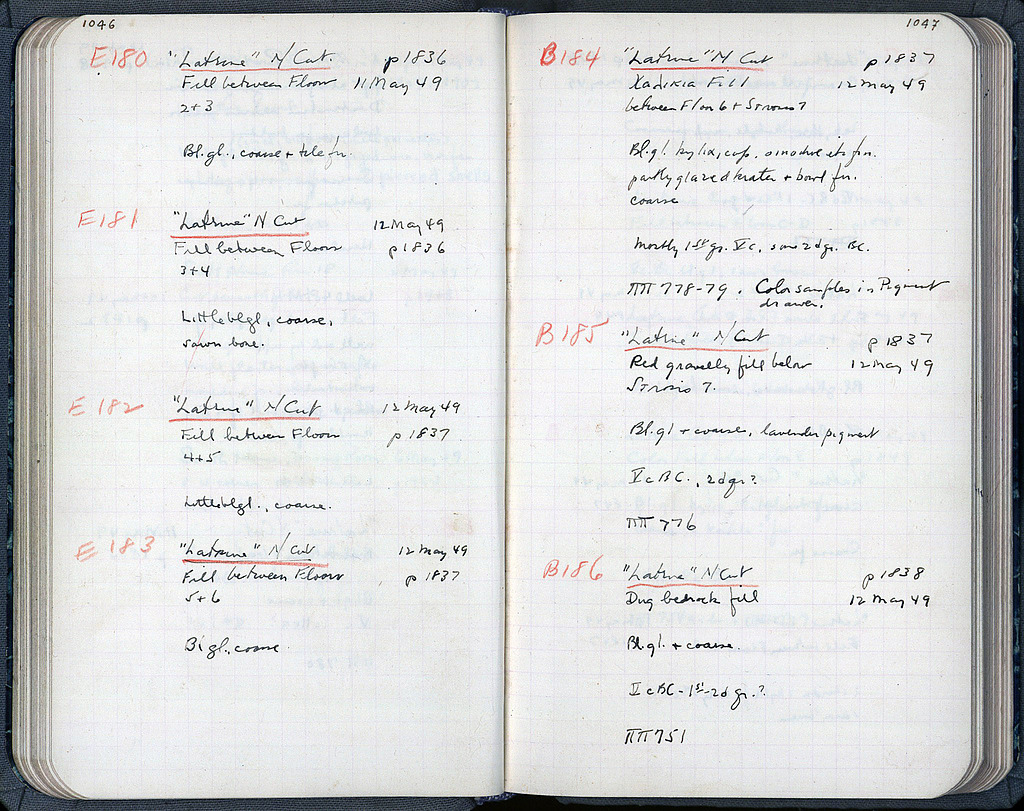 1046
E180 "Latrine" N/Cut. p1836
Fill between Floor 11 May 49
2+3
Bl.gl., coarse + tile fr.
E181 "Latrine" N Cut 12 May 49
Fill between Floors p1836
3+4
Little blgl, coarse,
sawn bone.
E182 "Latrine" N/Cut 12 May 49
Fill between Floors p1837
4+5
Little blgl., coarse.
E183 "Latrine" N/Cut 12 May 49
Fill between Floors p1837
5+6
Bl gl., coarse
1047
B184 "Latrine" N Cut p1837
Xadikia Fill 12 May 49
between Floor 6 + Strosis 7
Bl.gl. kylix, cup, oinochoe etc frr.
partly glazed krater + bowl frr.
coarse
Mostly 1st gr. V c., some 2d gr. BC.
ΠΠ 778-79. Color samples in Pigment
drawer.
B185 "Latrine" N/Cut p1837
Red gravelly fill below 12 May 49
Strosis 7.
Bl.gl + coarse, lavender pigment
V c BC., 2d gr?
ΠΠ 776
B186 "Latrine" N/Cut p1838
Dug bedrock fill 12 May 49
Bl.gl. + coarse.
V c BC - 1st-2d gr.?
ΠΠ 751